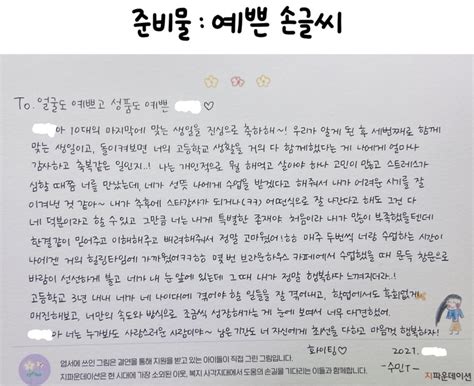 준비물 : 예쁜 손글씨
To. 얼굴도 예쁘고 성품도 예쁜 ♡
아 10대의 마지막에 맞는 생일을 진심으로 축하해~! 우리가 알게 된 후 세번째로 함께
맞는 생일이고, 돌이켜보면 너의 고등학교 생활을 거의 다 함께했다는 게 나에게 얼마나
감사하고 축복같은 일인지..! 나는 개인적으로 뭘 해먹고 살아야 하나 고민이 많고 스트레스가
심할 때쯤 너를 만났는데, 네가 선뜻 나에게 수업을 받겠다고 해줘서 내가 어려운 시기를 잘
이겨낸 것 같아~ 내가 추후에 스타강사가 되거나(ㅋㅋ) 어떤식으로 잘 나간다고 해도 그건 다
네 덕분이라고 할 수 있고 그만큼 너는 내게 특별한 존재야. 처음이라 내가 많이 부족했을텐데
한결같이 믿어주고 이해해주고 배려해줘서 정말 고마웠어!ㅎㅎ 매주 두번씩 너랑 수업하는 시간이
나에겐 거의 힐링타임에 가까웠어ㅋㅋㅎㅎ 몇 번 브라운하우스 카페에서 수업했을 때 문득 창문으로
바람이 선선하게 불고 네가 내 눈 앞에 있는데 그 때 내가 정말 행복하다 느껴지더라!
고등학교 3년 내내 네가 네 나이대에 겪어야 할 일들을 잘 겪어내고, 학업에서도 후회없게
매진해보고, 너만의 속도와 방식으로 조금씩 성장해가는 게 눈에 보여서 너무 대견하여.
아 너는 누가봐도 사랑스러운 사람이야~ 남은 기간도 너 자신에게 최선을 다하고 마음껏 행복하자!
화이팅! 2021.
-수민T-
엽서에 쓰인 그림은 결연을 통해 지원을 받고 있는 아이들이 직접 그린 그림입니다.
지파운데이션은 현 시대에 가장 소외된 이웃, 복지 사각지대에서 도움의 손길을 기다리는 이들과 함께합니다.
지파운데이션